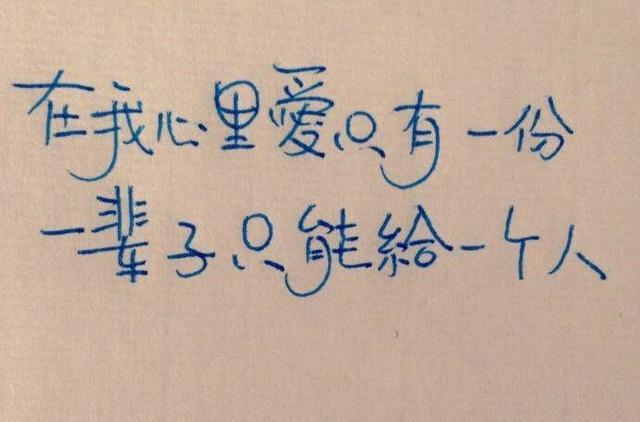 在我心里愛只有一份
一辈子只能給一个人